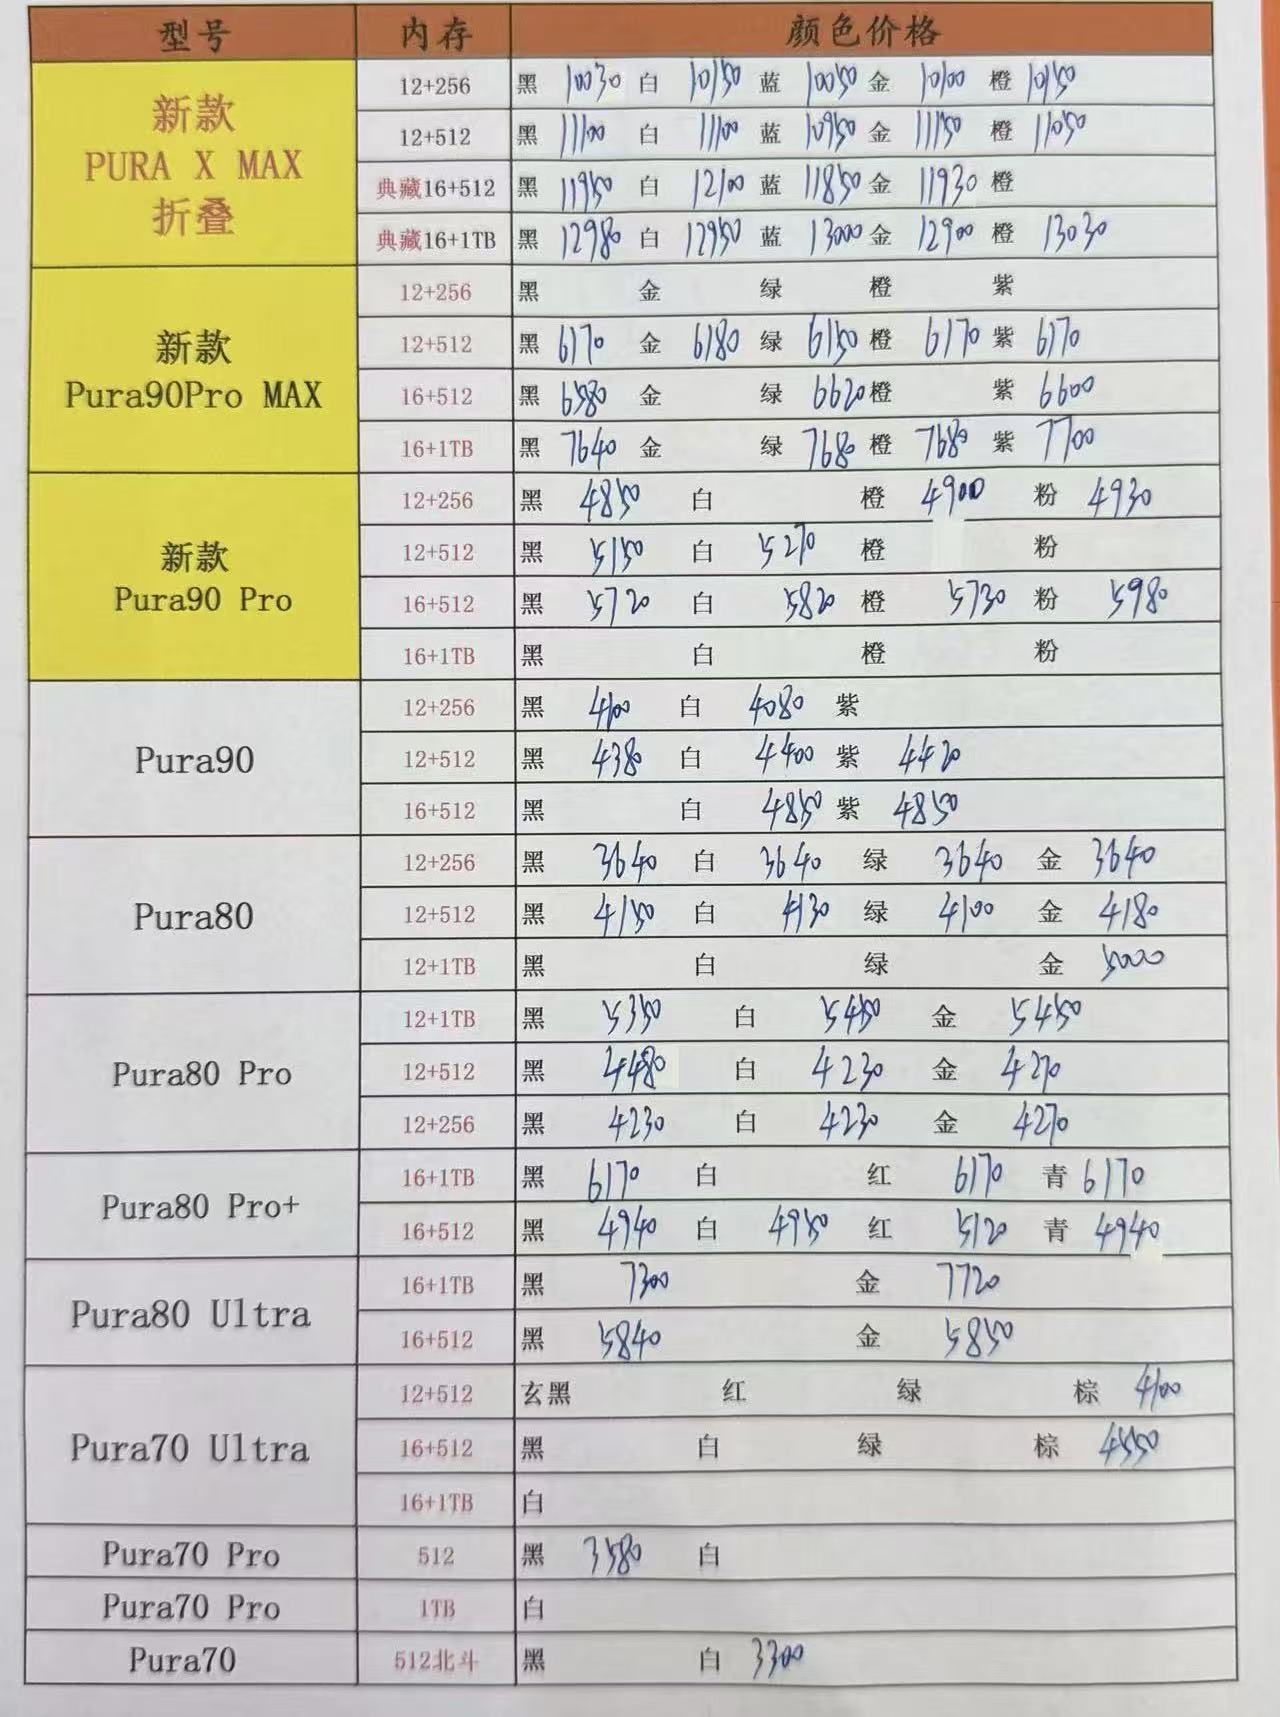 型号 内存 颜色价格
新款 PURA X MAX 折叠
12+256 黑 10030 白 10150 蓝 10050 金 10100 橙 10150
12+512 黑 11100 白 11100 蓝 10950 金 11150 橙 11050
典藏16+512 黑 11950 白 12100 蓝 11850 金 11930 橙
典藏16+1TB 黑 12980 白 12950 蓝 13000 金 12900 橙 13030
新款 Pura90Pro MAX
12+256 黑 金 绿 橙 紫
12+512 黑 6170 金 6180 绿 6150 橙 6170 紫 6170
16+512 黑 6580 金 绿 6620 橙 紫 6600
16+1TB 黑 7640 金 绿 7680 橙 7680 紫 7700
新款 Pura90 Pro
12+256 黑 4850 白 橙 4900 粉 4930
12+512 黑 5150 白 5270 橙 粉
16+512 黑 5720 白 5820 橙 5730 粉 5980
16+1TB 黑 白 橙 粉
Pura90
12+256 黑 4100 白 4080 紫
12+512 黑 4380 白 4400 紫 4420
16+512 黑 白 4850 紫 4850
Pura80
12+256 黑 3640 白 3640 绿 3640 金 3640
12+512 黑 4150 白 4130 绿 4100 金 4180
12+1TB 黑 白 绿 金 5000
Pura80 Pro
12+1TB 黑 5350 白 5450 金 5450
12+512 黑 4480 白 4230 金 4270
12+256 黑 4230 白 4230 金 4270
Pura80 Pro+
16+1TB 黑 6170 白 红 6170 青 6170
16+512 黑 4940 白 4950 红 5120 青 4940
Pura80 Ultra
16+1TB 黑 7300 金 7720
16+512 黑 5840 金 5850
Pura70 Ultra
12+512 玄黑 红 绿 棕 4100
16+512 黑 白 绿 棕 4550
16+1TB 白
Pura70 Pro 512 黑 3580 白
Pura70 Pro 1TB 白
Pura70 512北斗 黑 白 3300